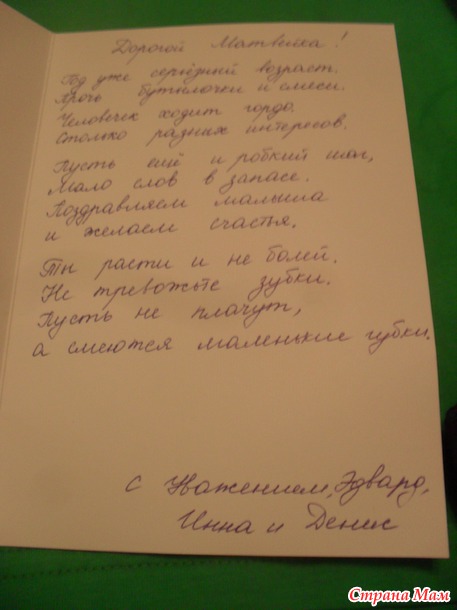 Дорогой Матвейка!
Год уже серьёзный возраст.
Прочь бутылочки и смеси.
Человечек ходит гордо.
Столько разных интересов.
Пусть ещё и робкий шаг,
Мало слов в запасе.
Поздравляем малыша
и желаем счастья.
Ты расти и не болей.
Не тревожьте зубки.
Пусть не плачут,
а смеются маленькие губки.
С Уважением, Эдвард,
Инна и Денис
Страна Мам